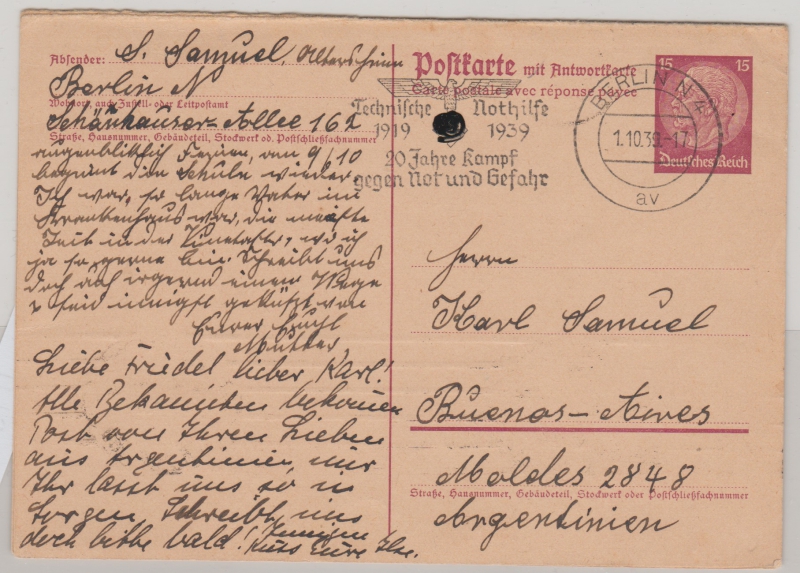 Absender: S. Samuel, Altersheim
Berlin N
Wohnort, auch Zustell- oder Leitpostamt
Schönhauser-Allee 162
Straße, Hausnummer, Gebäudeteil, Stockwerk od. Postschließfachnummer
augenblicklich Ferien, am 9/10
beginnt die Schule wieder.
Ich war, so lange Vater im
Krankenhaus war, die meiste
Zeit in der, wo ich
ja so gerne bin. Schreibt uns
doch auf irgend einem Wege
u seid innigst geküßt von
Eurer
Mutter
Liebe Friedel lieber Karl!
Alle Bekannten bekommen
Post von Ihren Lieben
aus Argentinien, nur
Ihr lasst uns so in
Sorgen. Schreibt uns
doch bitte bald! Innigen
Kuss Eure Ilse.
Postkarte mit Antwortkarte
Carte postale avec réponse payée
Technische Nothilfe
1919 1939
20 Jahre Kampf
gegen Not und Gefahr
BERLIN N 4
1.10.39.-17
av
15 15
Deutsches Reich
Herrn
Karl Samuel
Buenos-Aires
Moldes 2848
Straße, Hausnummer, Gebäudeteil, Stockwerk oder Postschließfachnummer
Argentinien